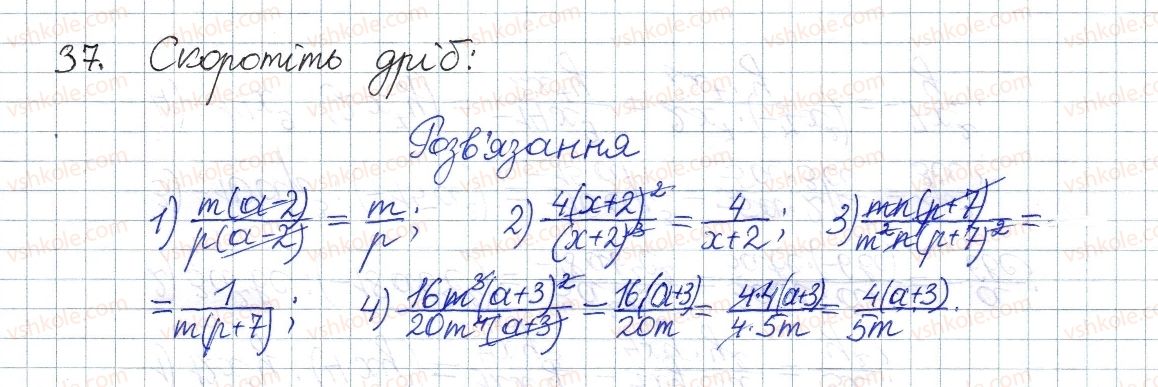 37. Скоротіть дріб:
Розв'язання
1) m(a-2)/p(a-2) = m/p; 2) 4(x+2)²/(x+2)³ = 4/x+2; 3) mn(p+7)/m²n(p+7)² =
= 1/m(p+7); 4) 16m³(a+3)²/20m⁴(a+3) = 16(a+3)/20m = 4·4(a+3)/4·5m = 4(a+3)/5m.